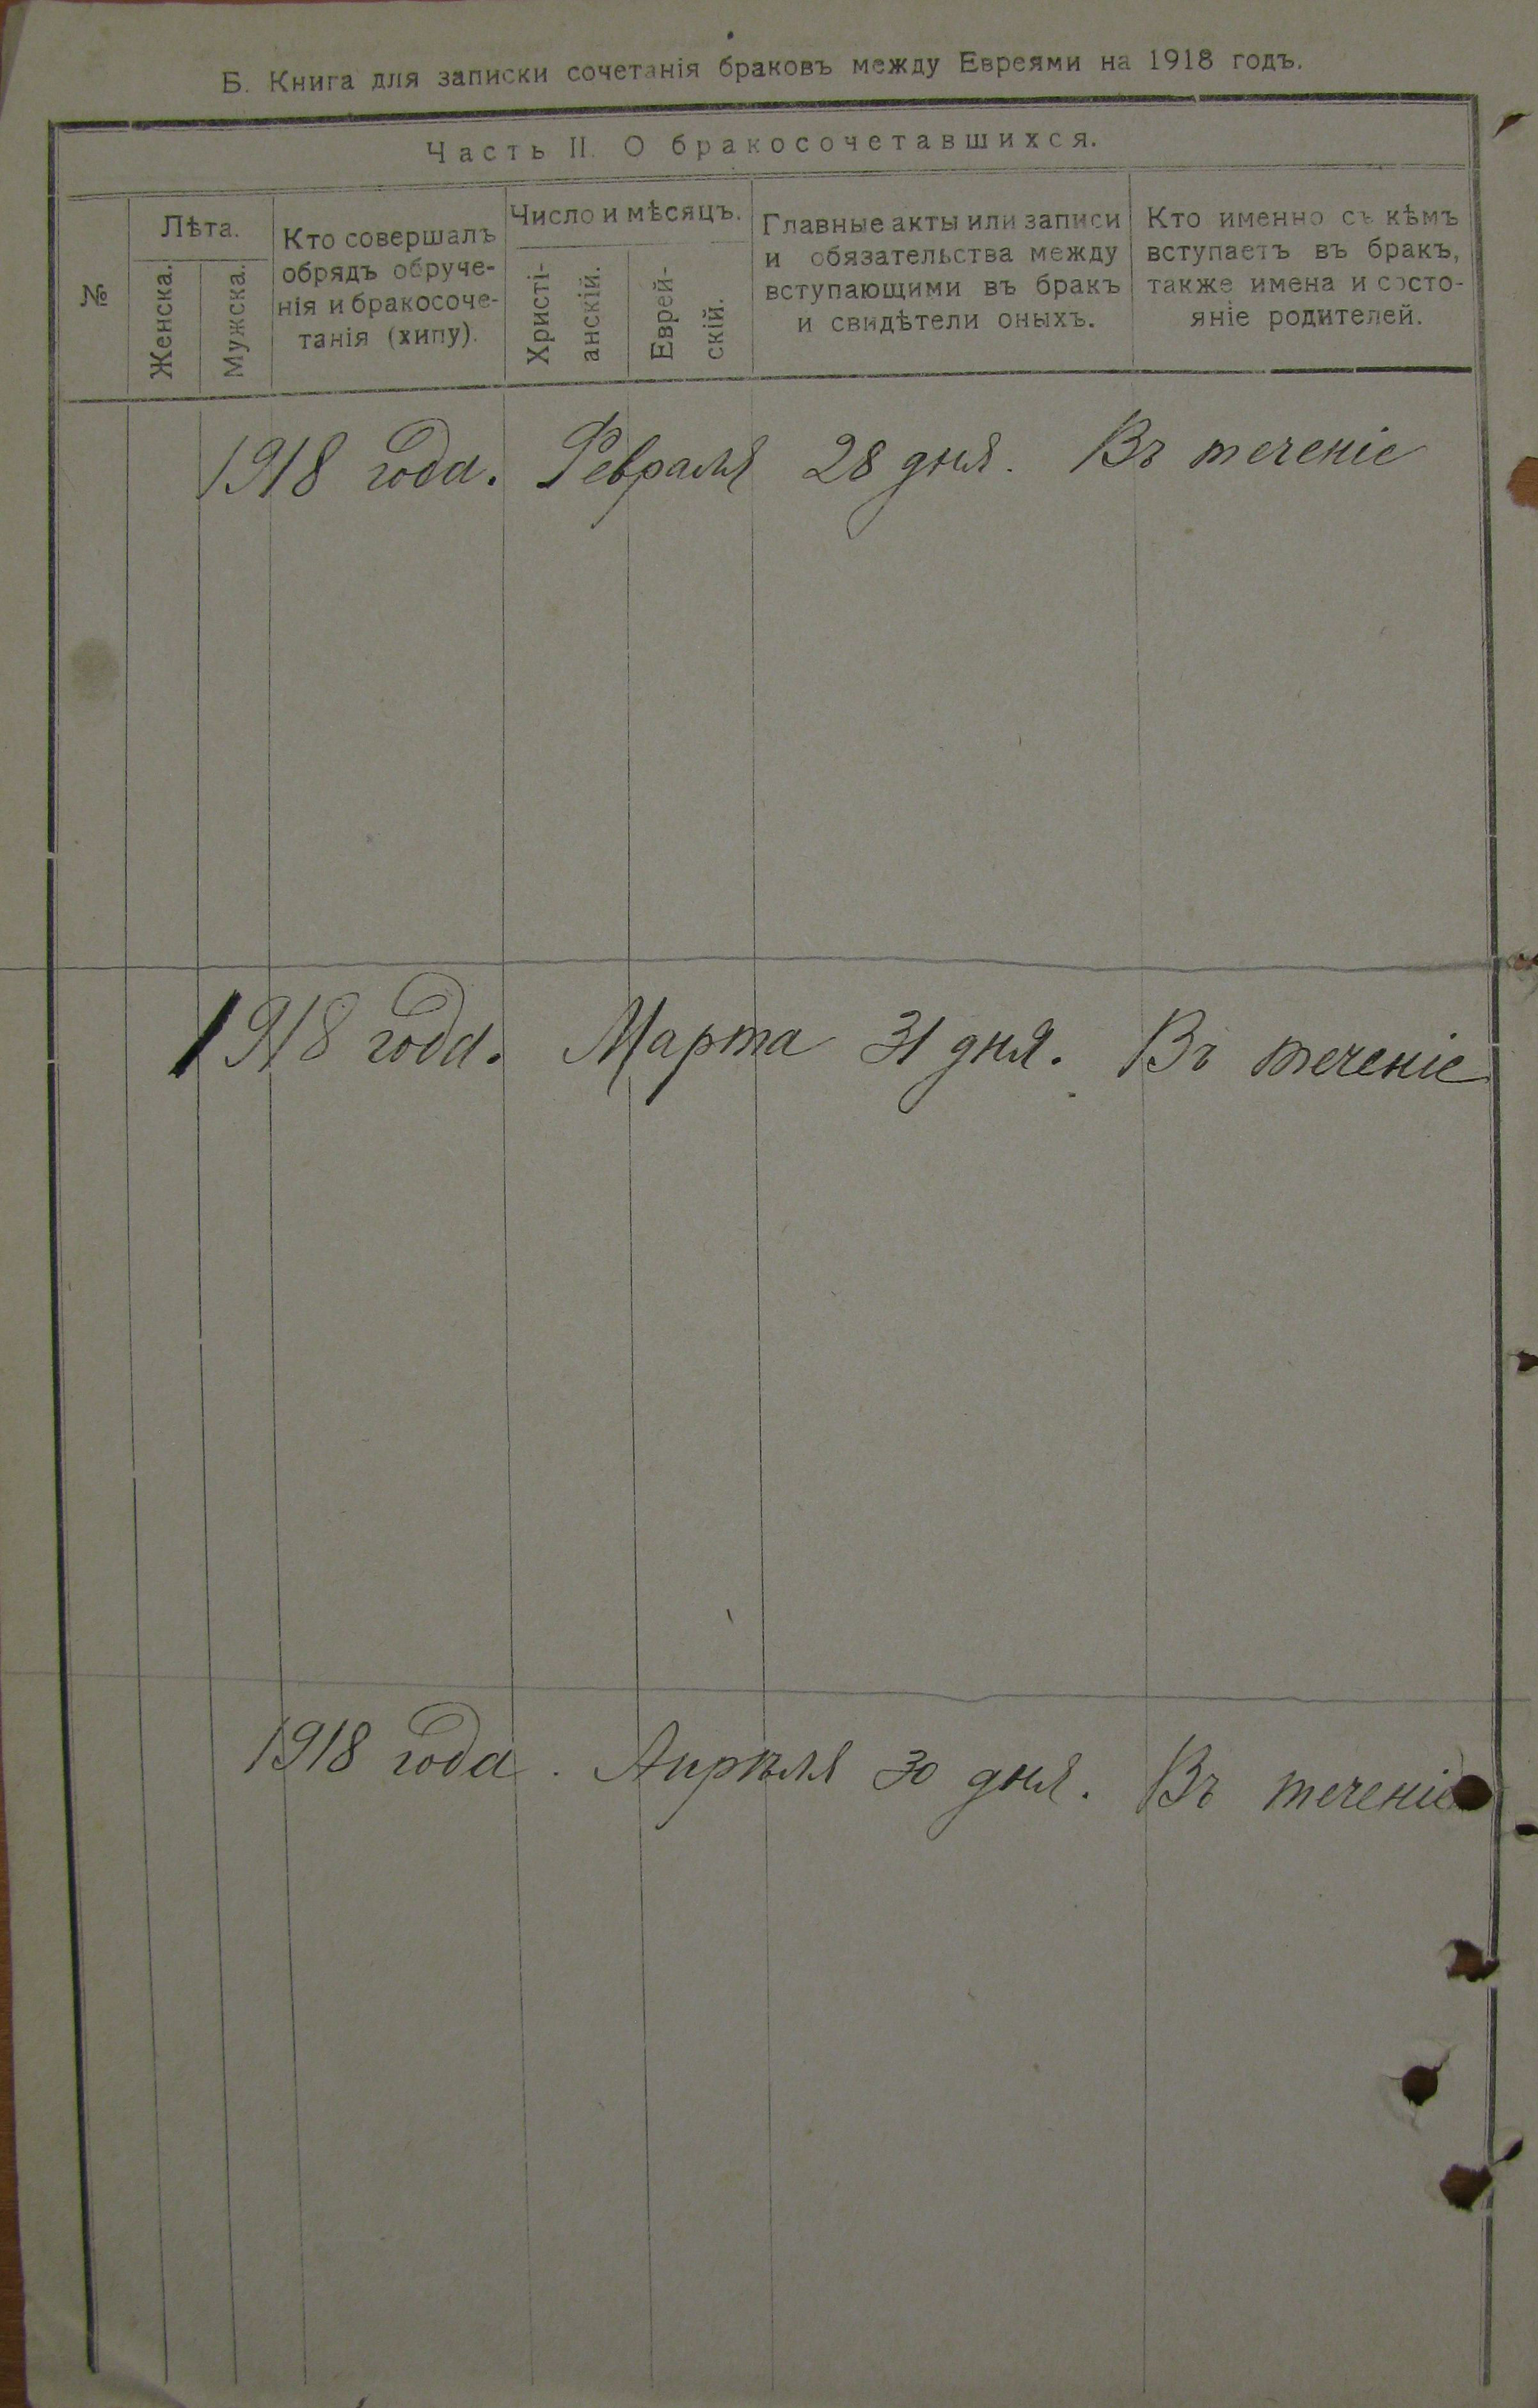 Б. Книга для записки сочетанія браковъ между Евреями на 1918 годъ.
Часть II. О бракосочетавшихся.
№
Лѣта.
Женска.
Мужска.
Кто совершалъ
обрядъ обруче-
нія и бракосоче-
танія (хипу).
Число и мѣсяцъ.
Христі-
анскій.
Еврей-
скій.
Главные акты или записи
и обязательства между
вступающими въ бракъ
и свидѣтели оныхъ.
Кто именно съ кѣмъ
вступаетъ въ бракъ,
также имена и состо-
яніе родителей.
1918 года. Февраля 28 дня. Въ теченіе
1918 года. Марта 31 дня. Въ теченіе
1918 года. Апрѣля 30 дня. Въ теченіе